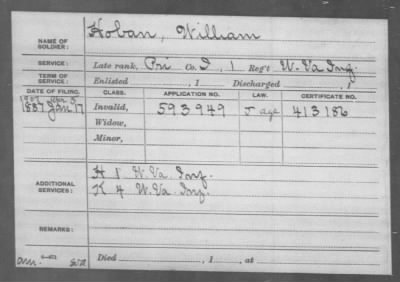 NAME OF SOLDIER: Hoban, William
SERVICE: Late rank, Pri Co. I, 1 Reg't W. Va Inf.
TERM OF SERVICE: Enlisted , 1 Discharged , 1
DATE OF FILING. CLASS. APPLICATION NO. LAW. CERTIFICATE NO.
1887 Jan 17 Invalid, 593949 age 413186
Widow,
Minor,
ADDITIONAL SERVICES: H 1 W. Va Inf.
K 4 W. Va Inf.
REMARKS:
Died , 1 , at